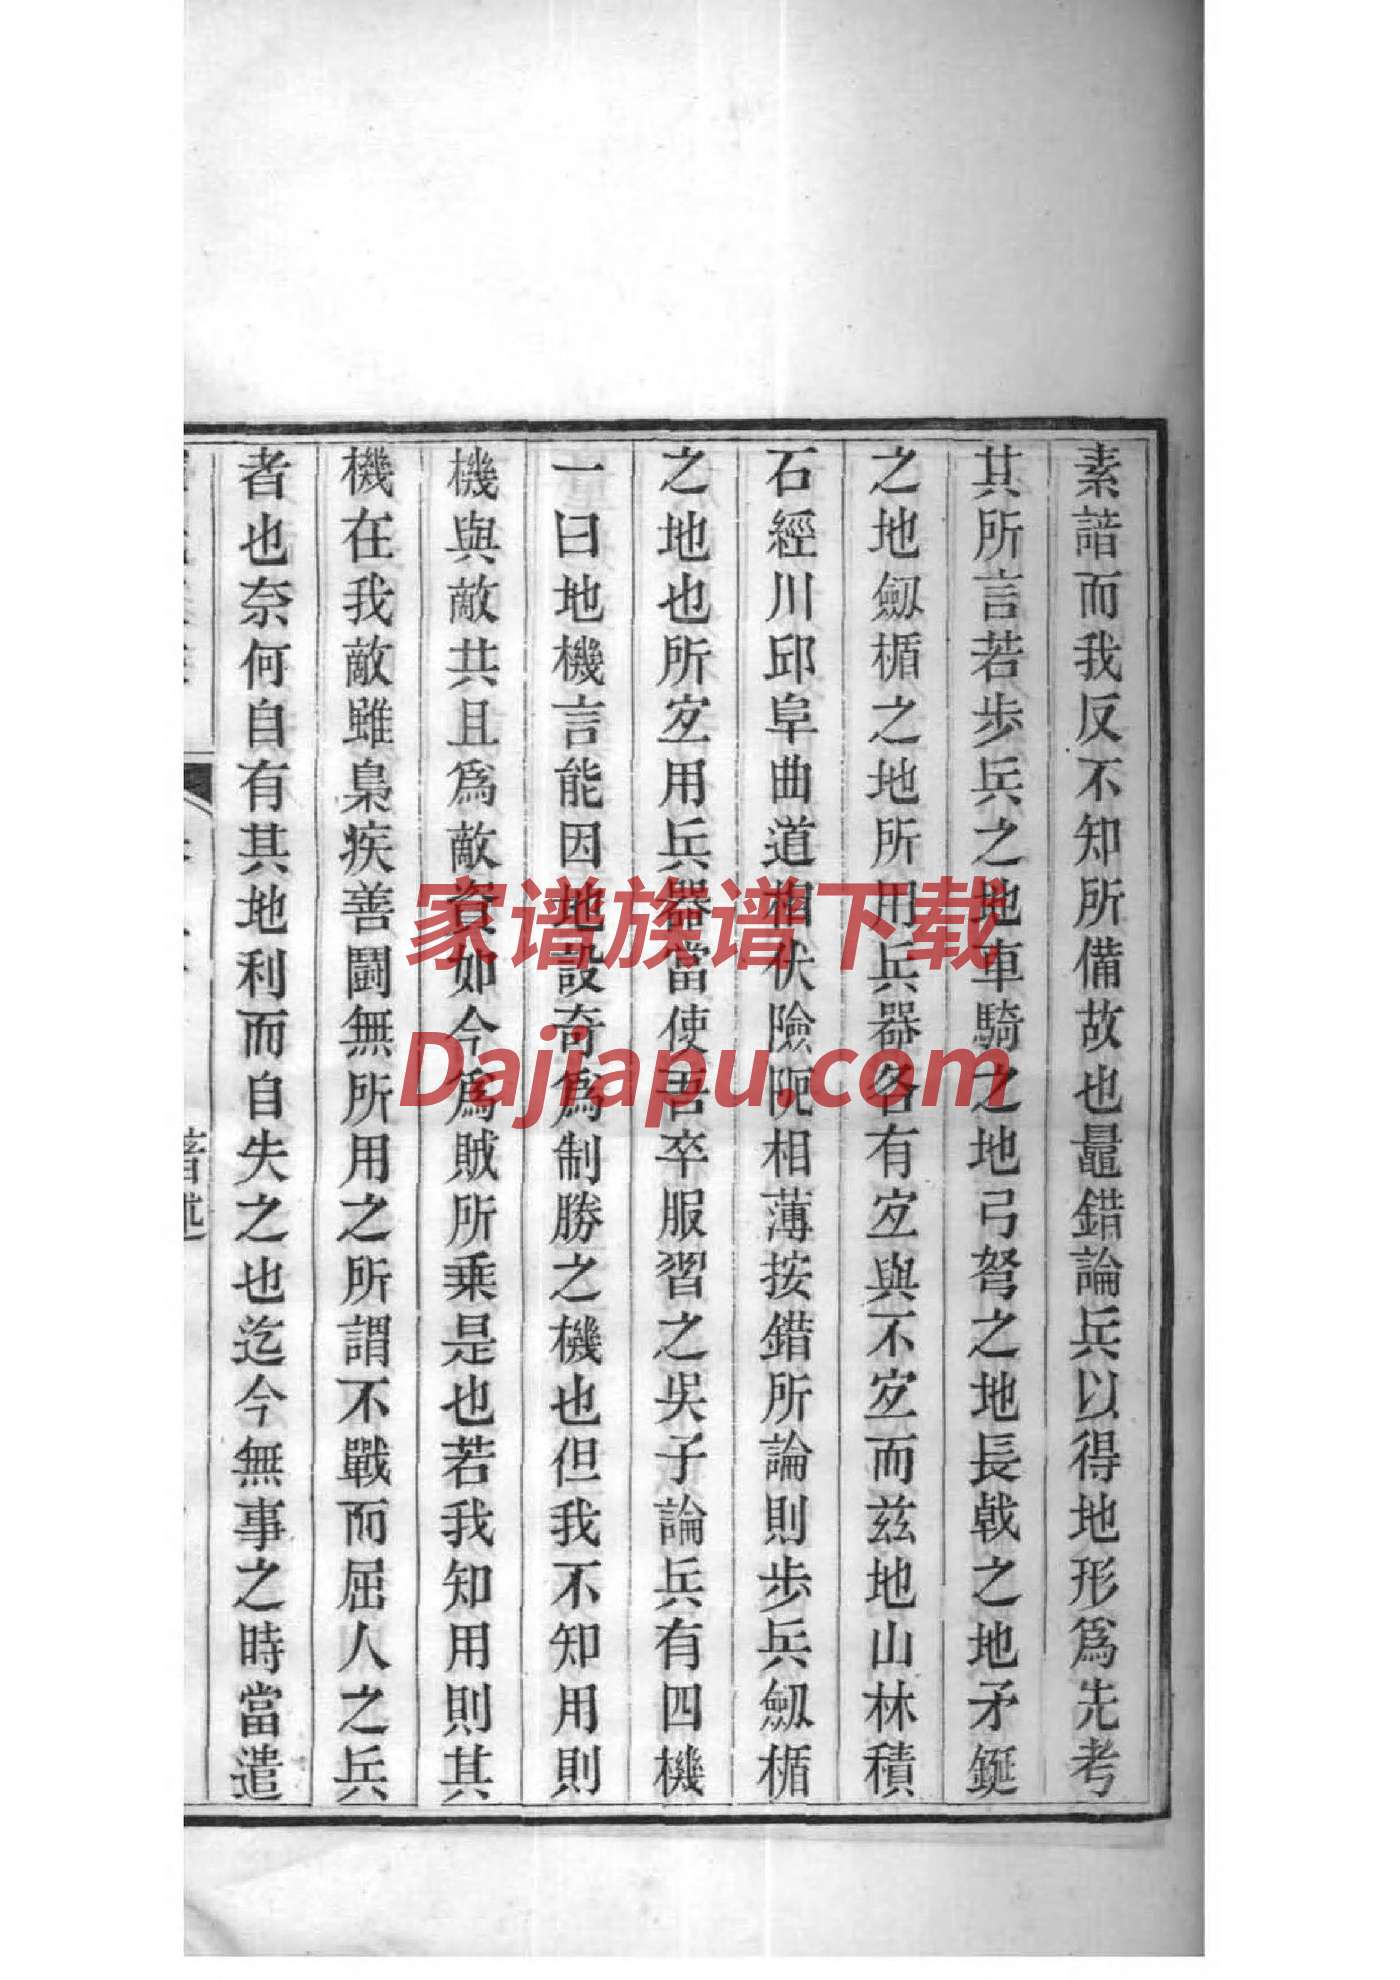 素諳而我反不知所備故也鼂錯論兵以得地形爲先考
其所言若步兵之地車騎之地弓弩之地長戟之地矛鋋
之地劔楯之地所用兵器各有宐與不宐而茲地山林積
石經川邱阜曲道相伏險阨相薄按錯所論則步兵劔楯
之地也所宐用兵器當使吾卒服習之吳子論兵有四機
一曰地機言能因地設奇爲制勝之機也但我不知用則
機與敵共且爲敵資如今爲賊所乗是也若我知用則其
機在我敵雖梟疾善鬪無所用之所謂不戰而屈人之兵
者也奈何自有其地利而自失之也迄今無事之時當遣
著述
家谱族谱下载
Dajiapu.com